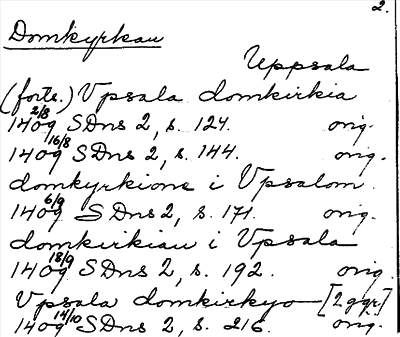 2.
Domkyrkan
Uppsala
(forts.) Vpsala domkirkia
1409 2/8 SDns 2, s. 124. orig.
1409 16/8 SDns 2, s. 144. orig.
domkyrkione i Vpsalom
1409 6/9 SDns 2, s. 171. orig.
domkirkian i Vpsala
1409 18/9 SDns 2, s. 192. orig.
Vpsala domkirkyo [2 ggr]
1409 14/10 SDns 2, s. 216. orig.